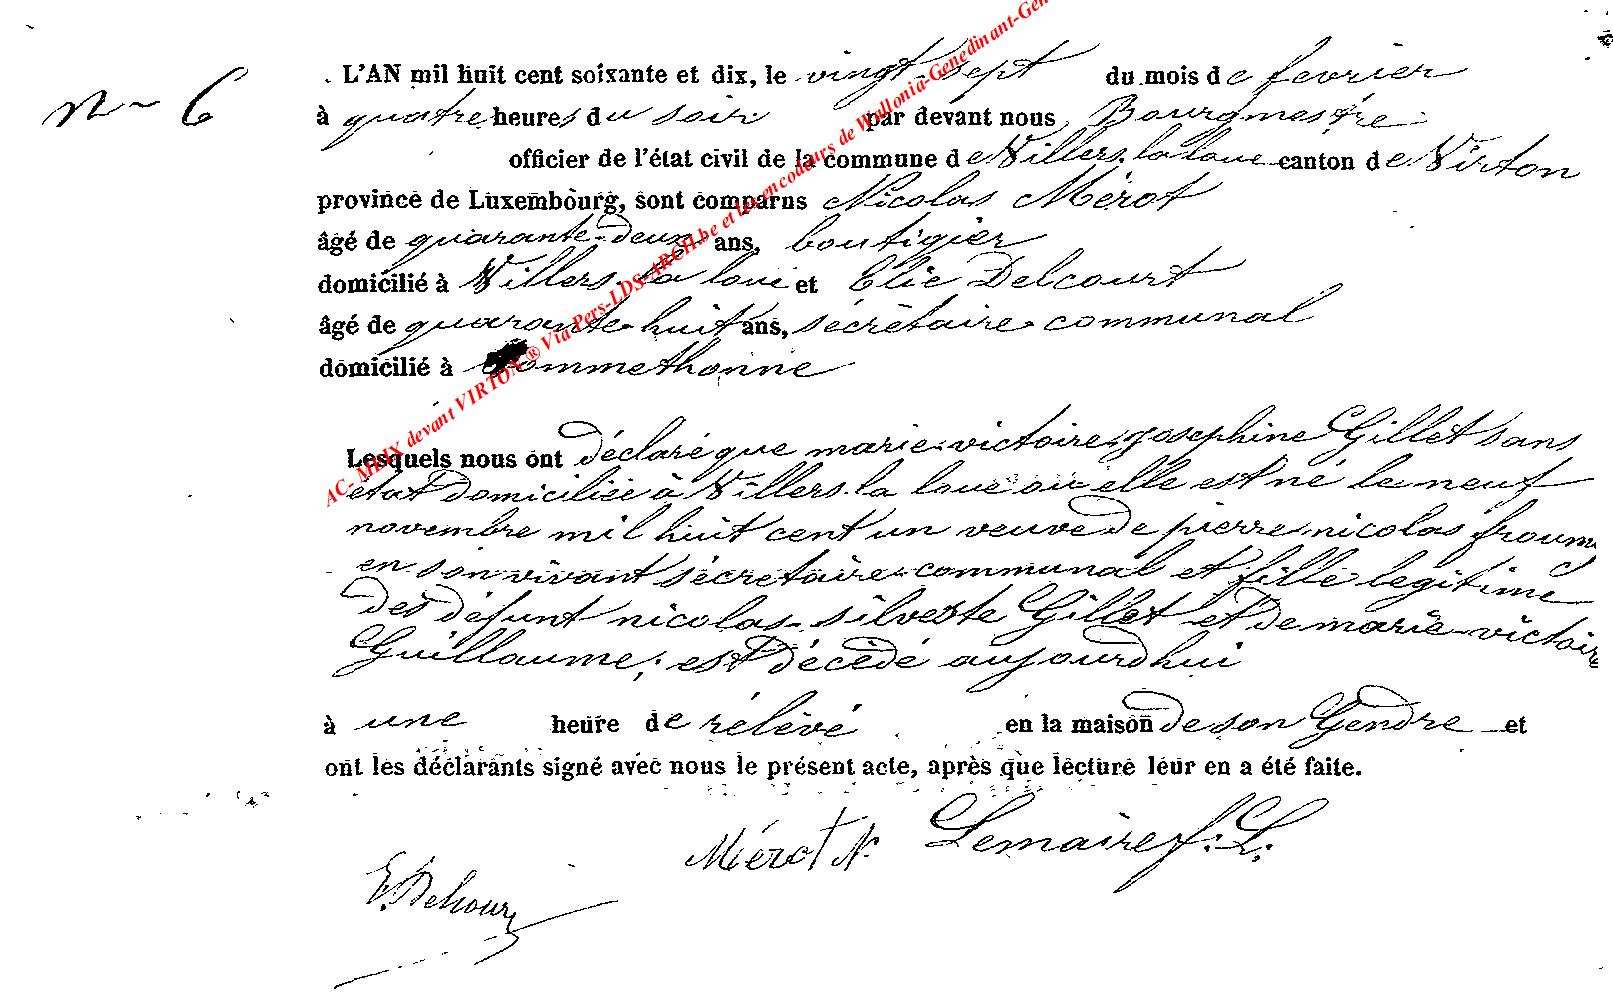 N~ 6
L'AN mil huit cent soixante et dix, le vingt-sept du mois de fevrier
à quatre heures du soir par devant nous, Bourgmestre
officier de l'état civil de la commune de Villers-la loue canton de Virton
province de Luxembourg, sont comparus Nicolas Mérot
âgé de quarante-deux ans, boutigier
domicilié à Villers-la loue et Elie Delcourt
âgé de quarante-huit ans, sécrétaire communal
domicilié à Sommethonne
Lesquels nous ont déclaré que marie-victoire-josephine Gillet sans
état domiciliée à Villers-la loue où elle est né le neuf
novembre mil huit cent un veuve de pierre-nicolas
en son vivant sécretaire-communal et fille legitime
des défunt nicolas-silvestre Gillet et de marie-victoire
Guillaume, est décédé aujourdhui
à une heure de rélévé en la maison de son Gendre et
ont les déclarants signé avec nous le présent acte, après que lecture leur en a été faite.
Mérot N. Lemaire f. L.
E.
AC- MEIX devant VIRTON ® Via Pers-LDS-ARCH.be et les encodeurs de Wallonia-Genedinant-Gen